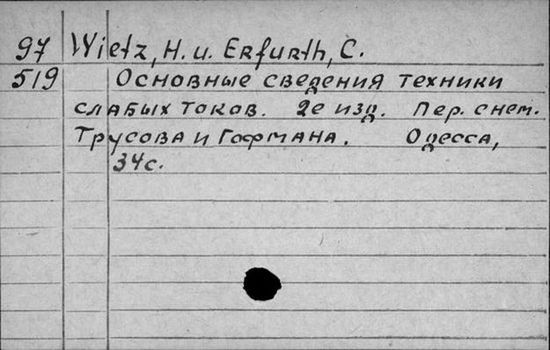 97 Wietz, H. u. Erfurth, C.
519 Основные сведения техники
слабых токов. 2е изд. Пер. с нем.
Трусова и Гофмана. Одесса,
34с.